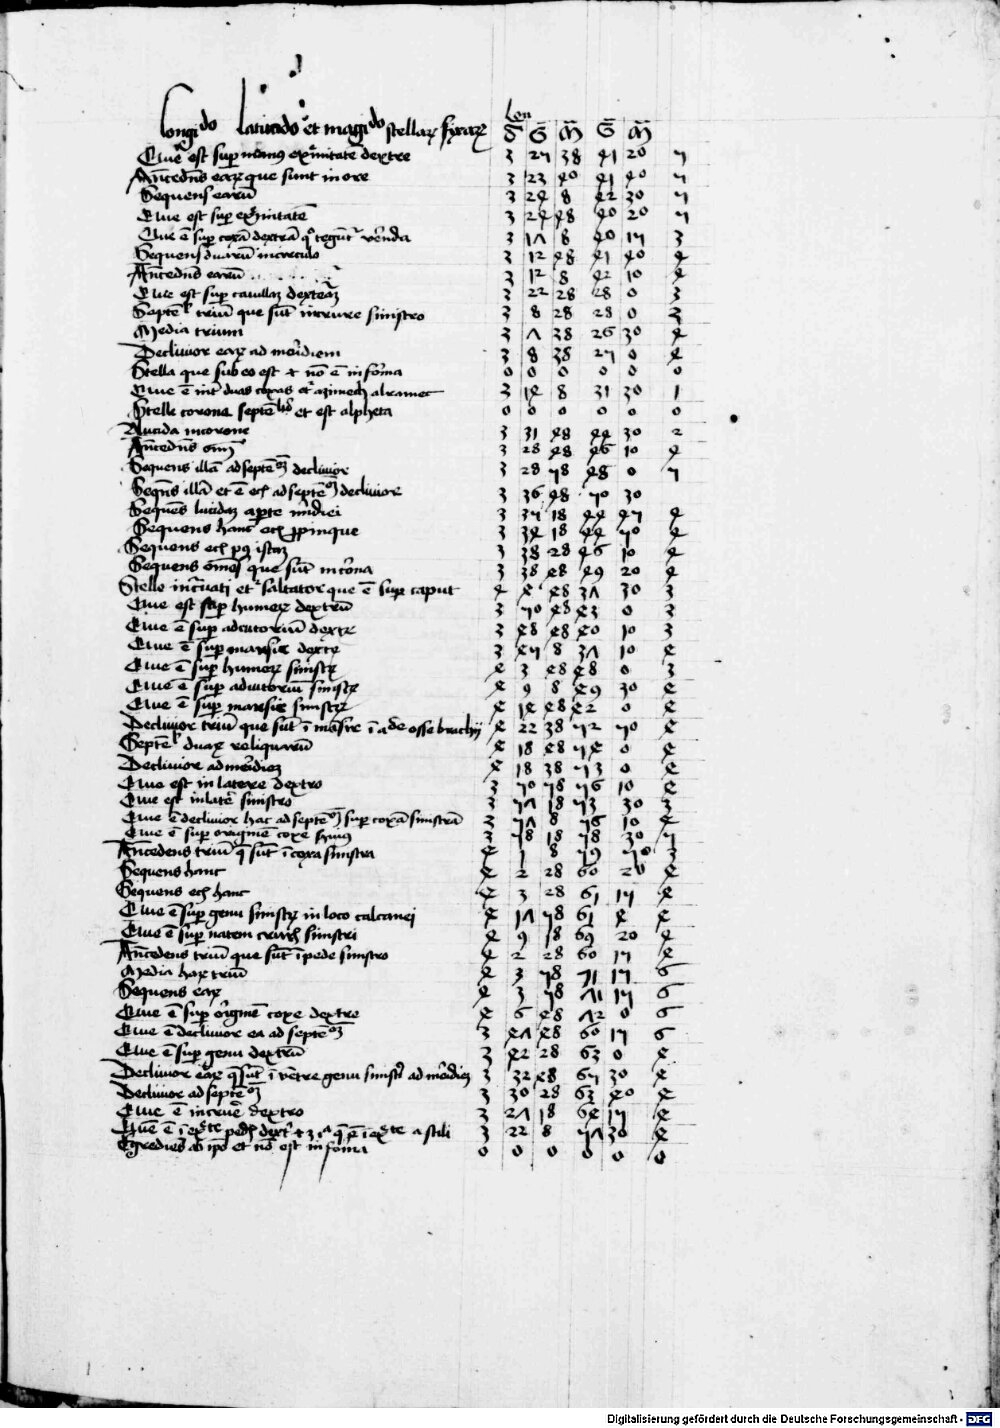 Longitudo latitudo et magitudo stellarum fixarum
Lon
S G M G M
Que est super manus extremitatem dextre 3 27 38 41 20 5
Antecedens earum que sunt in ore 3 23 40 41 40 5
Sequens earum 3 24 8 42 30 5
Que est super extremitatem 3 24 48 40 20 5
Que est super coxam dextram 3 17 8 40 15 3
Sequens duarum in cruculo 3 12 48 41 40 4
Antecedens earum 3 12 8 42 10 4
Que est super cavillam dextram 3 22 28 28 0 3
Septentrionalis trium que sunt in crure sinistro 3 8 28 28 0 3
Media trium 3 7 38 26 30 4
Declivior earum ad meridiem 3 8 38 25 0 4
Stella que sub eo est et non est in forma 0 0 0 0 0 0
Que est inter duas coxas et azimech alramec 3 14 8 31 30 1
Stelle corone septentrionalis et est alpheta 0 0 0 0 0 0
Lucida in corone 3 31 48 44 30 2
Antecedens omnium 3 28 48 46 10 4
Sequens illam ad septentrionem declivior 3 28 58 48 0 5
Sequens illam et est etiam ad septentrionem declivior 3 36 48 50 30
Sequens lucidam a parte meridiei 3 35 18 44 45 4
Sequens hanc etiam propinque 3 34 18 44 50 4
Sequens etiam post istam 3 38 28 46 10 4
Sequens omnes que sunt in corona 3 38 48 49 20 4
Stelle incurvati et saltator que est super caput 4 4 48 37 30 3
Que est super humerum dextrum 3 50 48 43 0 3
Que est super adiutorium dextrum 3 48 48 40 10 3
Que est super marfic dextrum 3 45 8 37 10 4
Que est super humerum sinistrum 4 3 48 48 0 3
Que est super adiutorium sinistrum 4 9 8 49 30 4
Que est super marfic sinistrum 4 14 48 42 0 4
Declivior trium que sunt in osse brachii 4 22 38 52 50 4
Septentrionalis duarum reliquarum 4 18 48 54 0 4
Declivior ad meridiem 4 18 38 53 0 4
Que est in latere dextro 3 50 58 56 10 4
Que est in latere sinistro 3 57 18 53 30 3
Que est declivior hac ad septentrionem super coxam sinistram 3 57 8 56 10 4
Que est super originem coxe huius 3 58 18 58 30 5
Antecedens trium que sunt in coxa sinistra 4 1 8 59 50 3
Sequens hanc 4 2 28 60 20 4
Sequens etiam hanc 4 3 28 61 15 4
Que est super genu sinistrum in loco calcanei 4 17 58 61 4 4
Que est super natem cruris sinistri 4 9 18 69 20 4
Antecedens trium que sunt in pede sinistro 4 2 28 60 15 4
Media harum trium 4 3 58 71 15 6
Sequens earum 4 3 58 71 15 6
Que est super originem coxe dextre 4 6 48 72 0 6
Que est declivior ea ad septentrionem 3 47 48 60 15 6
Que est super genu dextrum 3 42 28 63 0 4
Declivior earum que sunt in ventre genu sinistri ad meridiem 3 32 48 65 30 4
Declivior ad septentrionem 3 30 28 63 40 4
Que est in crure dextro 3 27 18 64 15 4
Que est in extremitate pedis dextri 3 22 8 57 30 4
Egrediens ab ipso et non est in forma 0 0 0 0 0 0
Digitalisierung gefördert durch die Deutsche Forschungsgemeinschaft - DFG